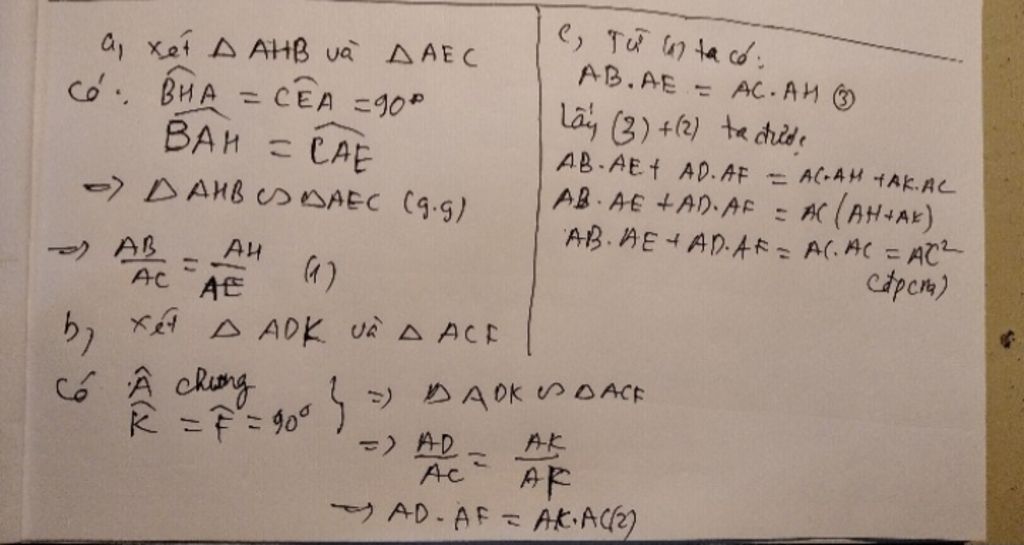 a, xét Δ AHB và Δ AEC
Có: BHA = CEA = 90°
BAH = CAE
=> Δ AHB ∽ ΔAEC (g.g)
=> AB/AC = AH/AE (1)
b, xét Δ ADK và Δ ACF
Có Â chung
K̂ = F̂ = 90° } => Δ ADK ∽ ΔACF
=> AD/AC = AK/AF
=> AD.AF = AK.AC(2)
c, Từ (1) ta có:
AB.AE = AC.AH (3)
Lấy (3)+(2) ta được
AB.AE+ AD.AF = AC.AH +AK.AC
AB.AE +AD.AF = AC (AH+AK)
AB.AE +AD.AF = AC.AC = AC²
(đpcm)